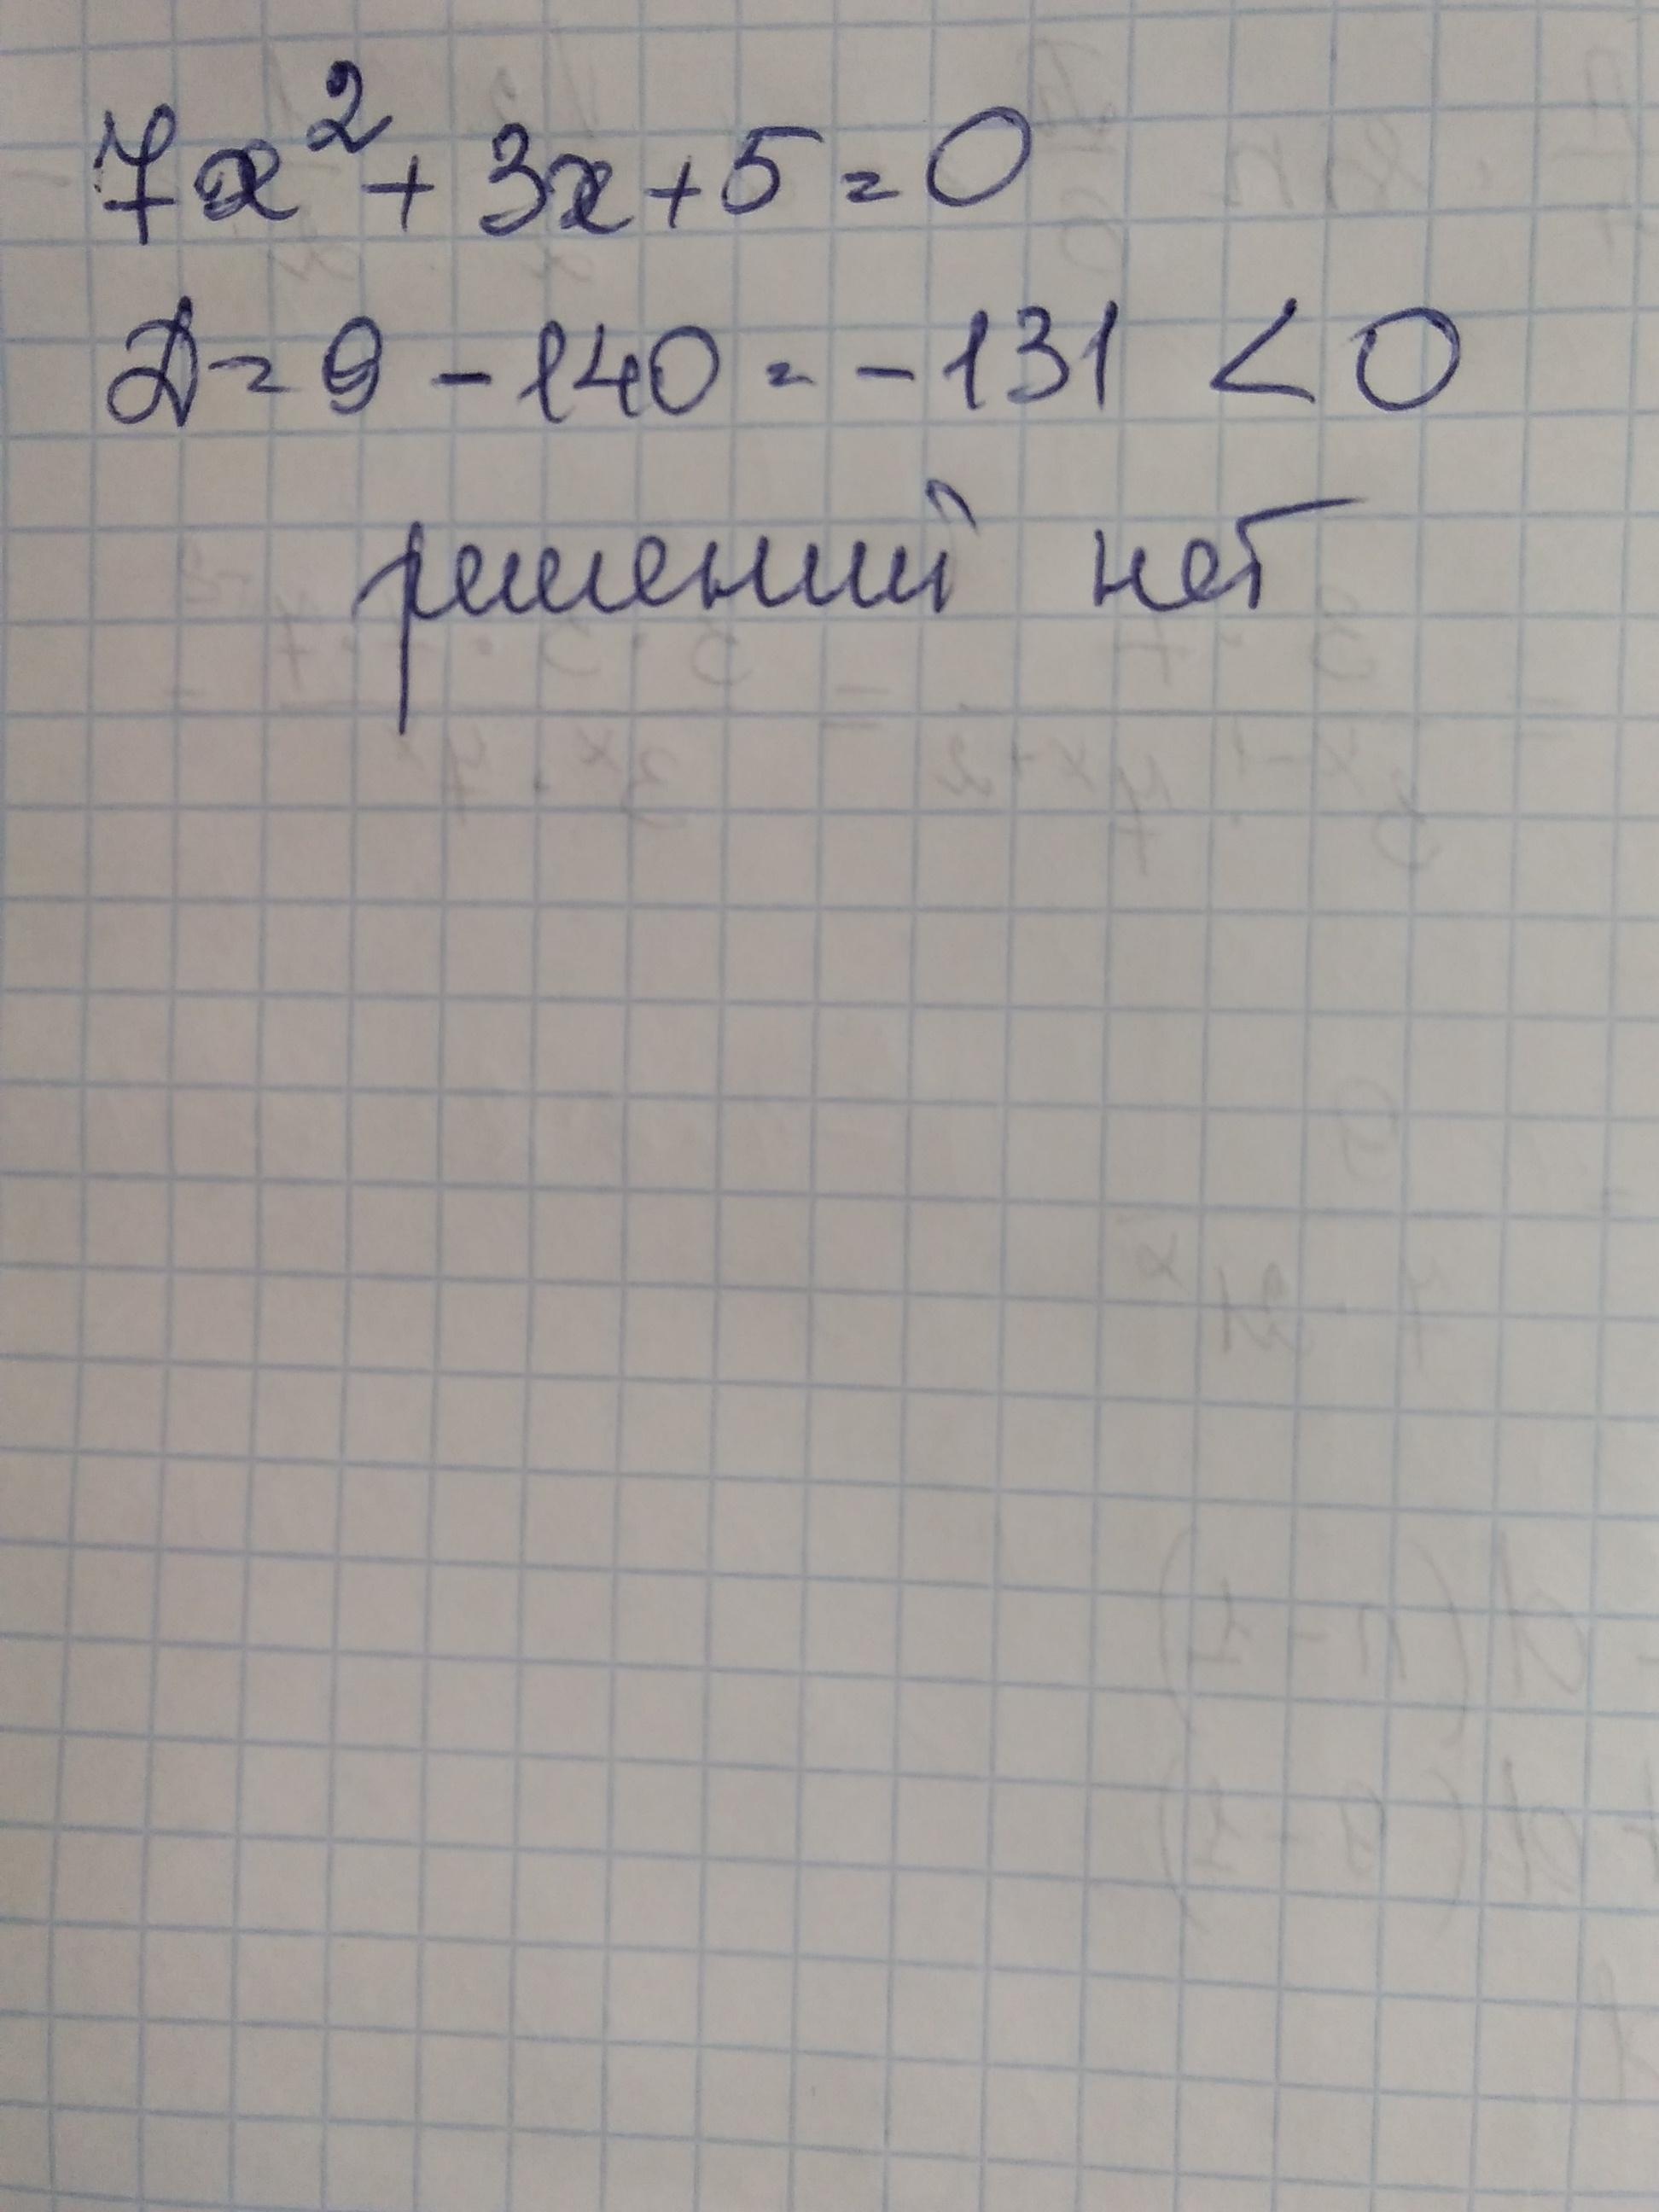 7x² + 3x + 5 = 0
D = 9 - 140 = -131 < 0
решений нет